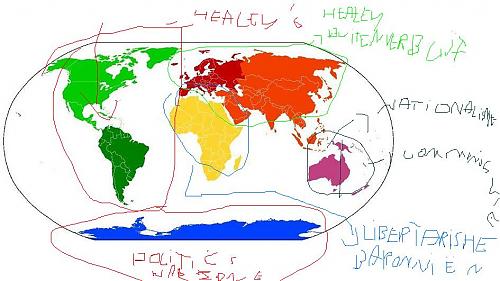 HEALEY'S
HEALEY
BUITENVERBLIJF
NATIONALISME
COMMUNIS
LIBERTARISHE
BARONNIEN
POLITICS
WARZONE